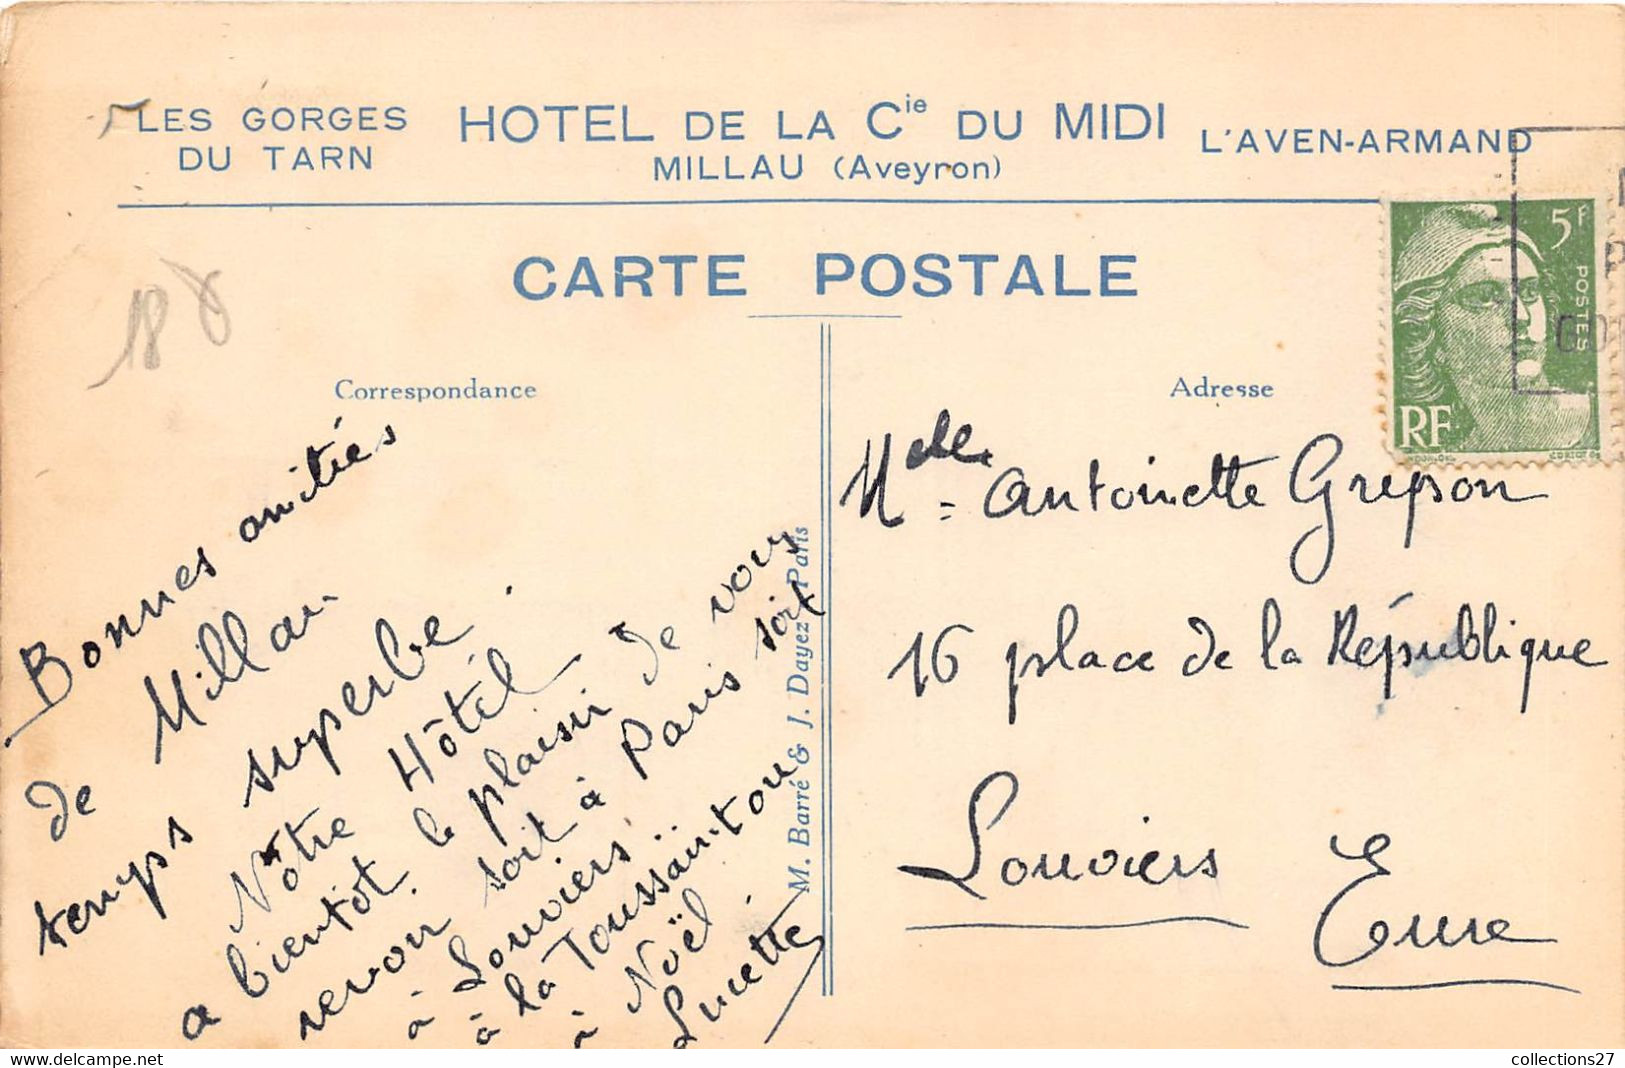 LES GORGES
DU TARN
HOTEL DE LA Cie DU MIDI
MILLAU (Aveyron)
L'AVEN-ARMAND
CARTE POSTALE
18
Correspondance
Adresse
Bonnes amitiés
de Millau.
temps superbe.
Nôtre Hôtel
a bientôt. le plaisir de vous
revoir soit à Paris soit
à Louviers.
à la Toussaint ou
à Noël.
Lucette
M. Barré & J. Dayez Paris
5F
POSTES
RF
Melle Antoinette Grepson
16 place de la République
Louviers
Eure
collections27